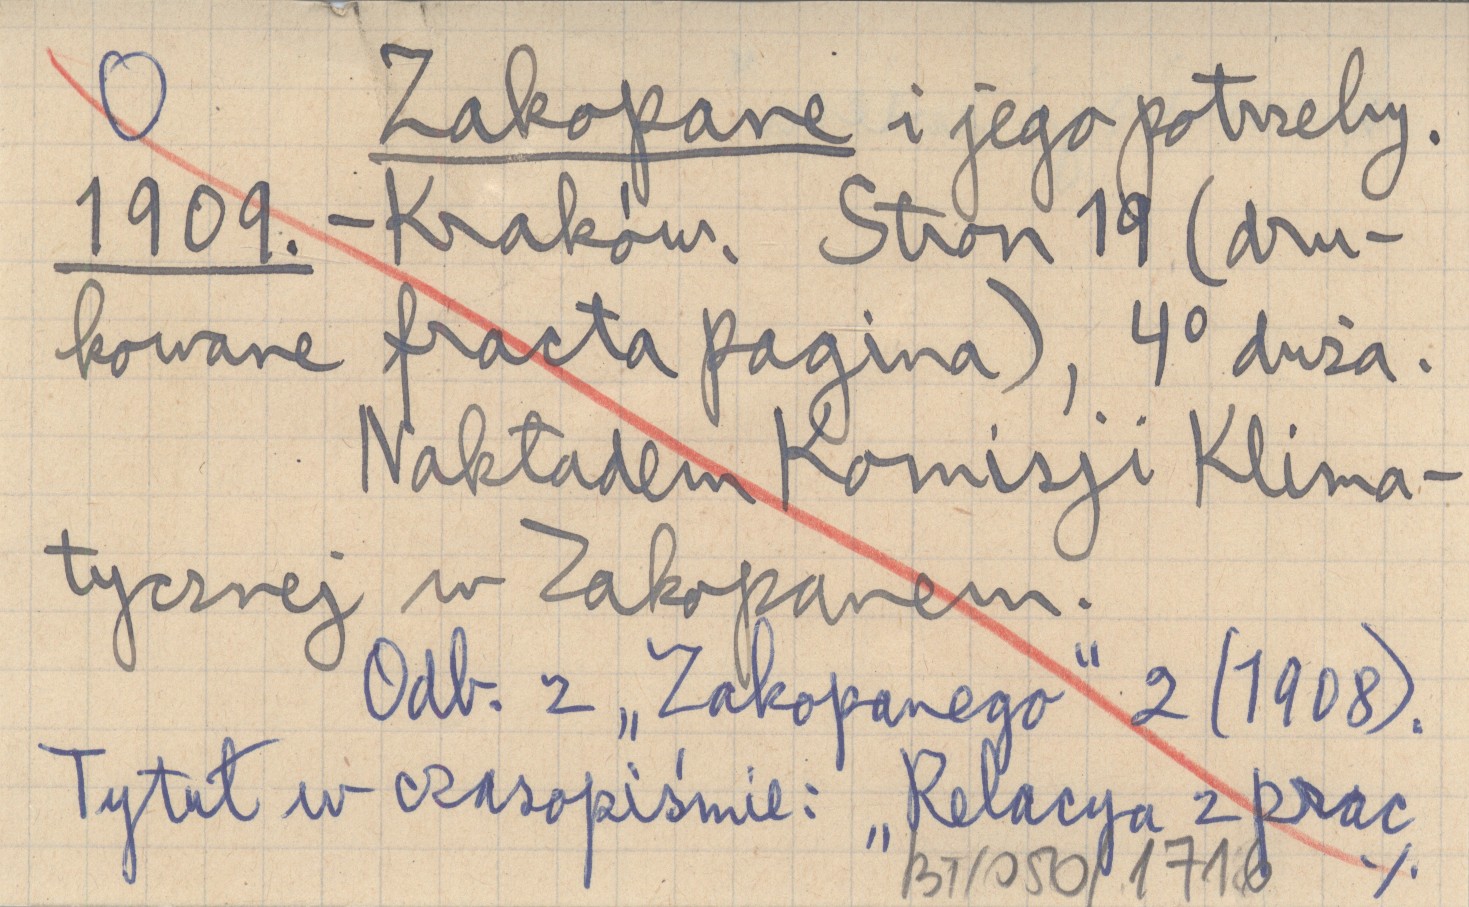 O Zakopane i jego potrzeby.
1909. - Kraków. Stron 19 (dru-
kowane fracta pagina), 4° duża.
Nakładem Komisji Klima-
tycznej w Zakopanem.
Odb. z „Zakopanego" 2 (1908).
Tytuł w czasopiśmie: „Relacya z prac
BT/050/1718 ./.